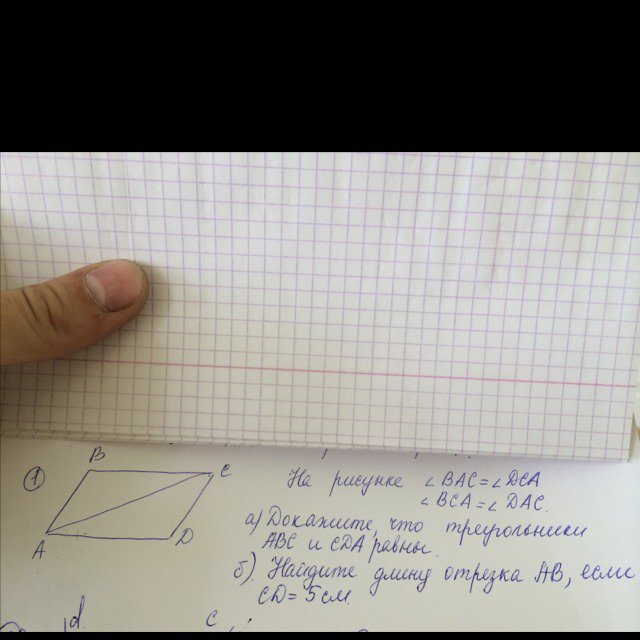 ① На рисунке ∠BAC=∠DCA
∠BCA=∠DAC.
а) Докажите, что треугольники
ABC и CDA равны.
б). Найдите длину отрезка AB, если
CD=5см.
B
C
A
D
d.
C